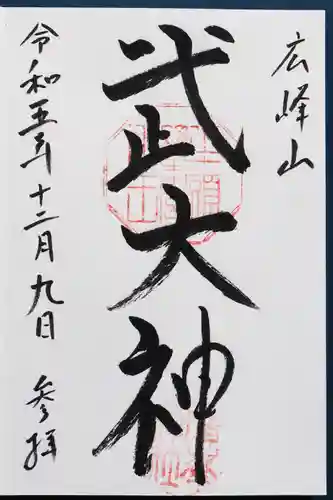 広峰山
武大神
令和五年十二月九日 参拝